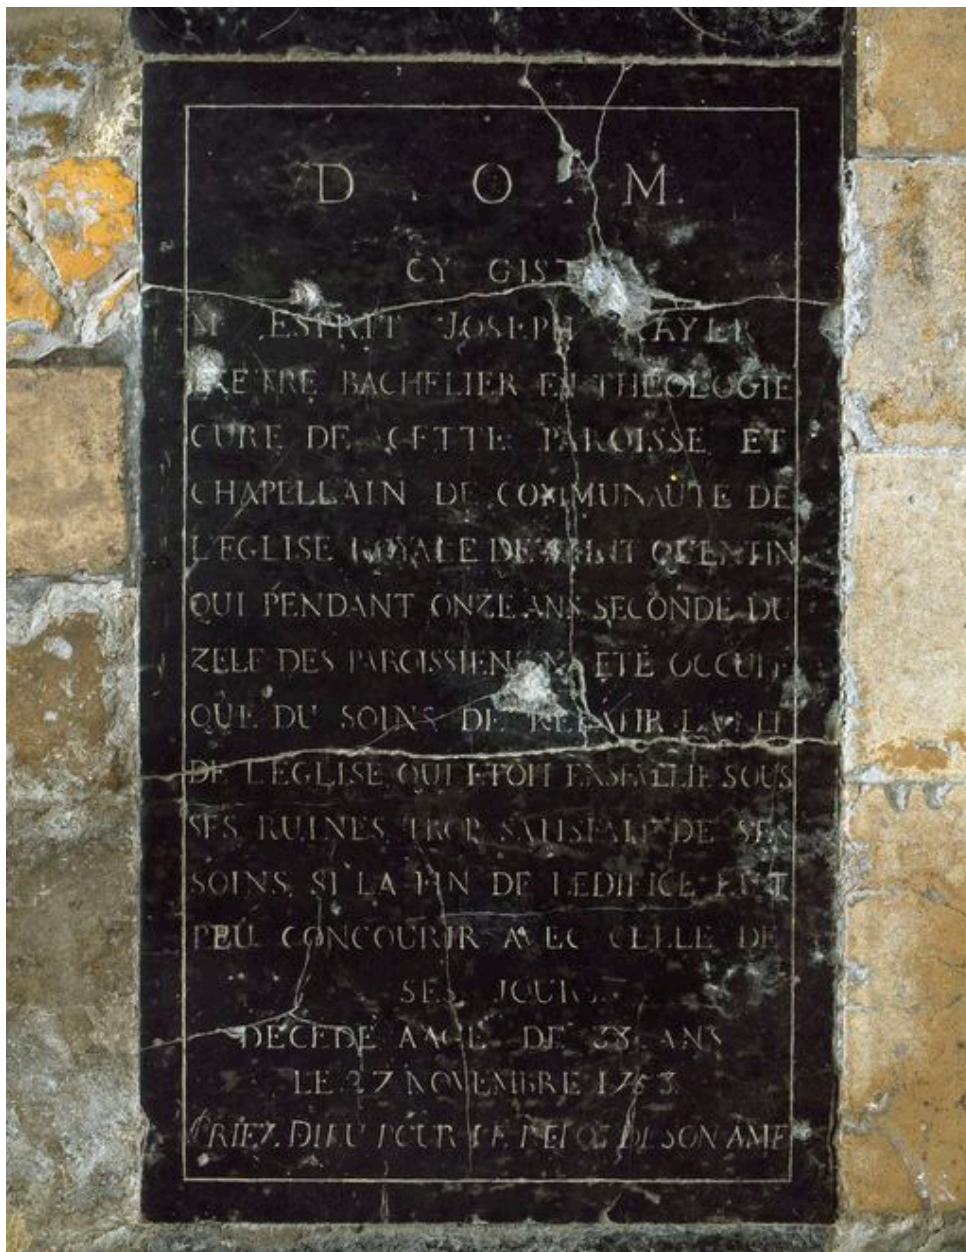 D . O . M.
CY GIST
M ESPRIT JOSEPH
PRETRE BACHELIER EN THEOLOGIE
CURE DE CETTE PAROISSE ET
CHAPELLAIN DE COMMUNAUTE DE
L'EGLISE ROYALE DE SAINT QUENTIN
QUI PENDANT ONZE ANS SECONDE DU
ZELE DES PAROISSIENS N'A ETÉ OCCUPÉ
QUE DU SOINS DE REBATIR LA NEF
DE L'EGLISE QUI ETOIT ENSEVELIE SOUS
SES RUINES, TROP SATISFAIT DE SES
SOINS, SI LA FIN DE L'EDIFICE EUT
PEU CONCOURIR AVEC CELLE DE
SES JOURS.
DECEDÉ AAGÉ DE ANS
LE 27 NOVEMBRE
PRIEZ DIEU POUR LE REPOS DE SON AME